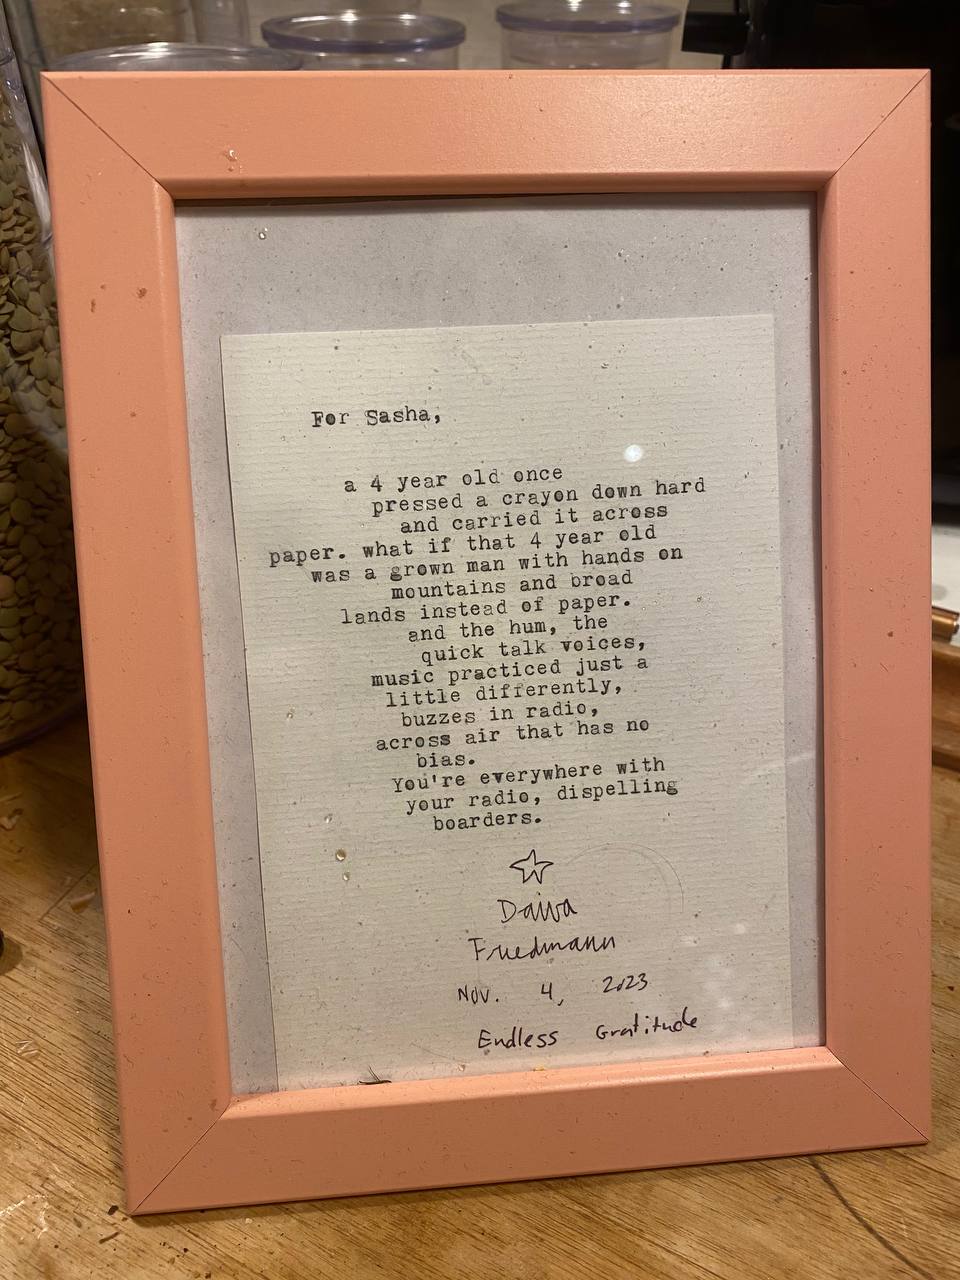 For Sasha,
a 4 year old once
pressed a crayon down hard
and carried it across
paper. what if that 4 year old
was a grown man with hands on
mountains and broad
lands instead of paper.
and the hum, the
quick talk voices,
music practiced just a
little differently,
buzzes in radio,
across air that has no
bias.
You're everywhere with
your radio, dispelling
boarders.
Daiva
Friedmann
Nov. 4, 2023
Endless Gratitude